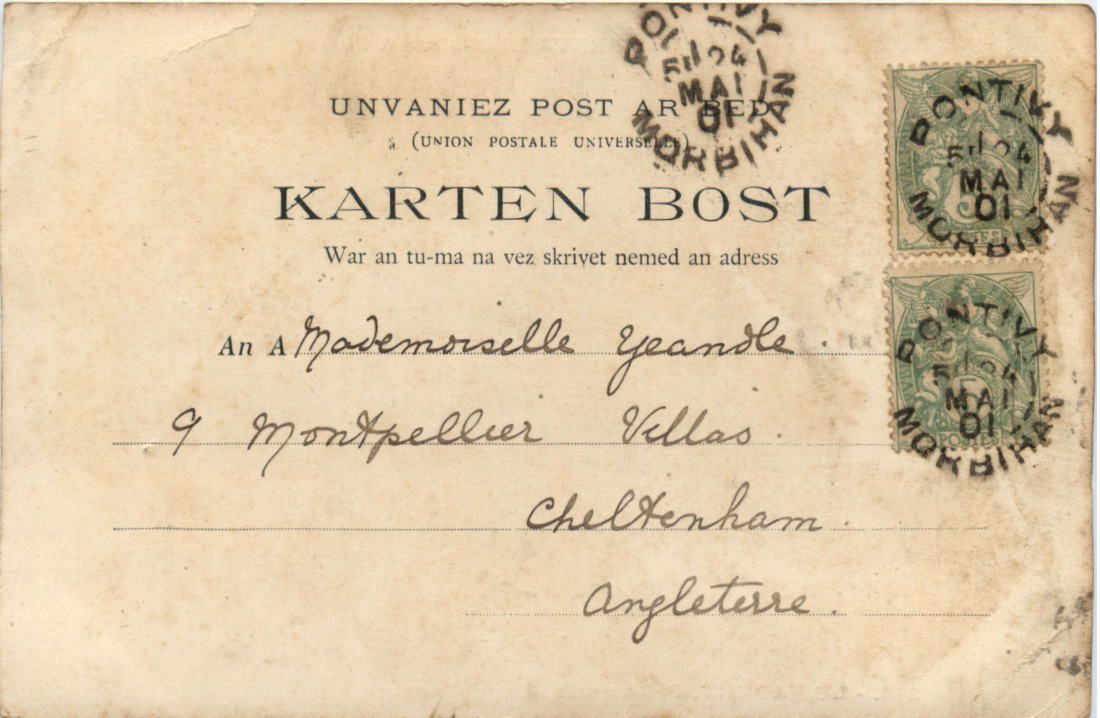 UNVANIEZ POST AR BED
(UNION POSTALE UNIVERSELLE)
KARTEN BOST
War an tu-ma na vez skrivet nemed an adress
An A Mademoiselle Yeandle.
9 Montpellier Villas.
Cheltenham.
Angleterre.
PONTIVY
24
MAI
01
MORBIHAN
PONTIVY
24
MAI
01
MORBIHAN
PONTIVY
24
MAI
01
MORBIHAN
5
POSTES